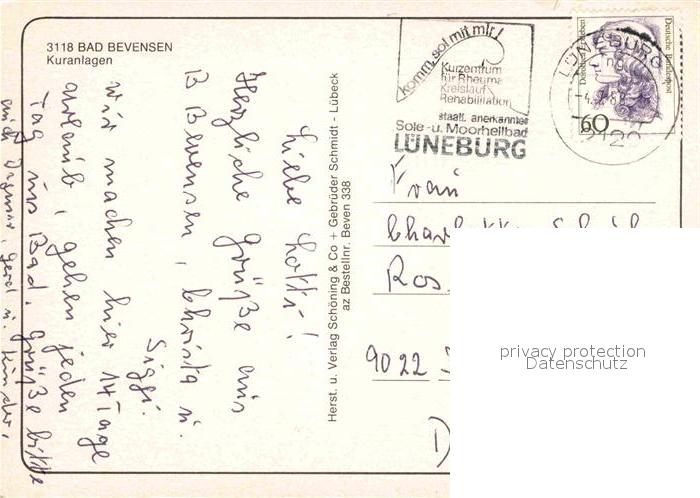 3118 BAD BEVENSEN
Kuranlagen
Liebe Lotti!
Herzliche Grüße aus
B Bevensen, Christa u.
Siggi.
wir machen hier 14 Tage
Urlaub, gehen jeden
Tag ins Bad. Grüße bitte
Dagmar, Gerd u. Kinder,
Herst. u. Verlag Schöning & Co + Gebrüder Schmidt - Lübeck
az Bestellnr. Beven 338
komm, sol mit mir!
Kurzentrum
für Rheuma
Kreislauf
Rehabilitation
staatl. anerkanntes
Sole- u. Moorheilbad
LÜNEBURG
LÜNEBURG
2120
Deutsche Bundespost
60
Frau
Ros
9022
privacy protection
Datenschutz